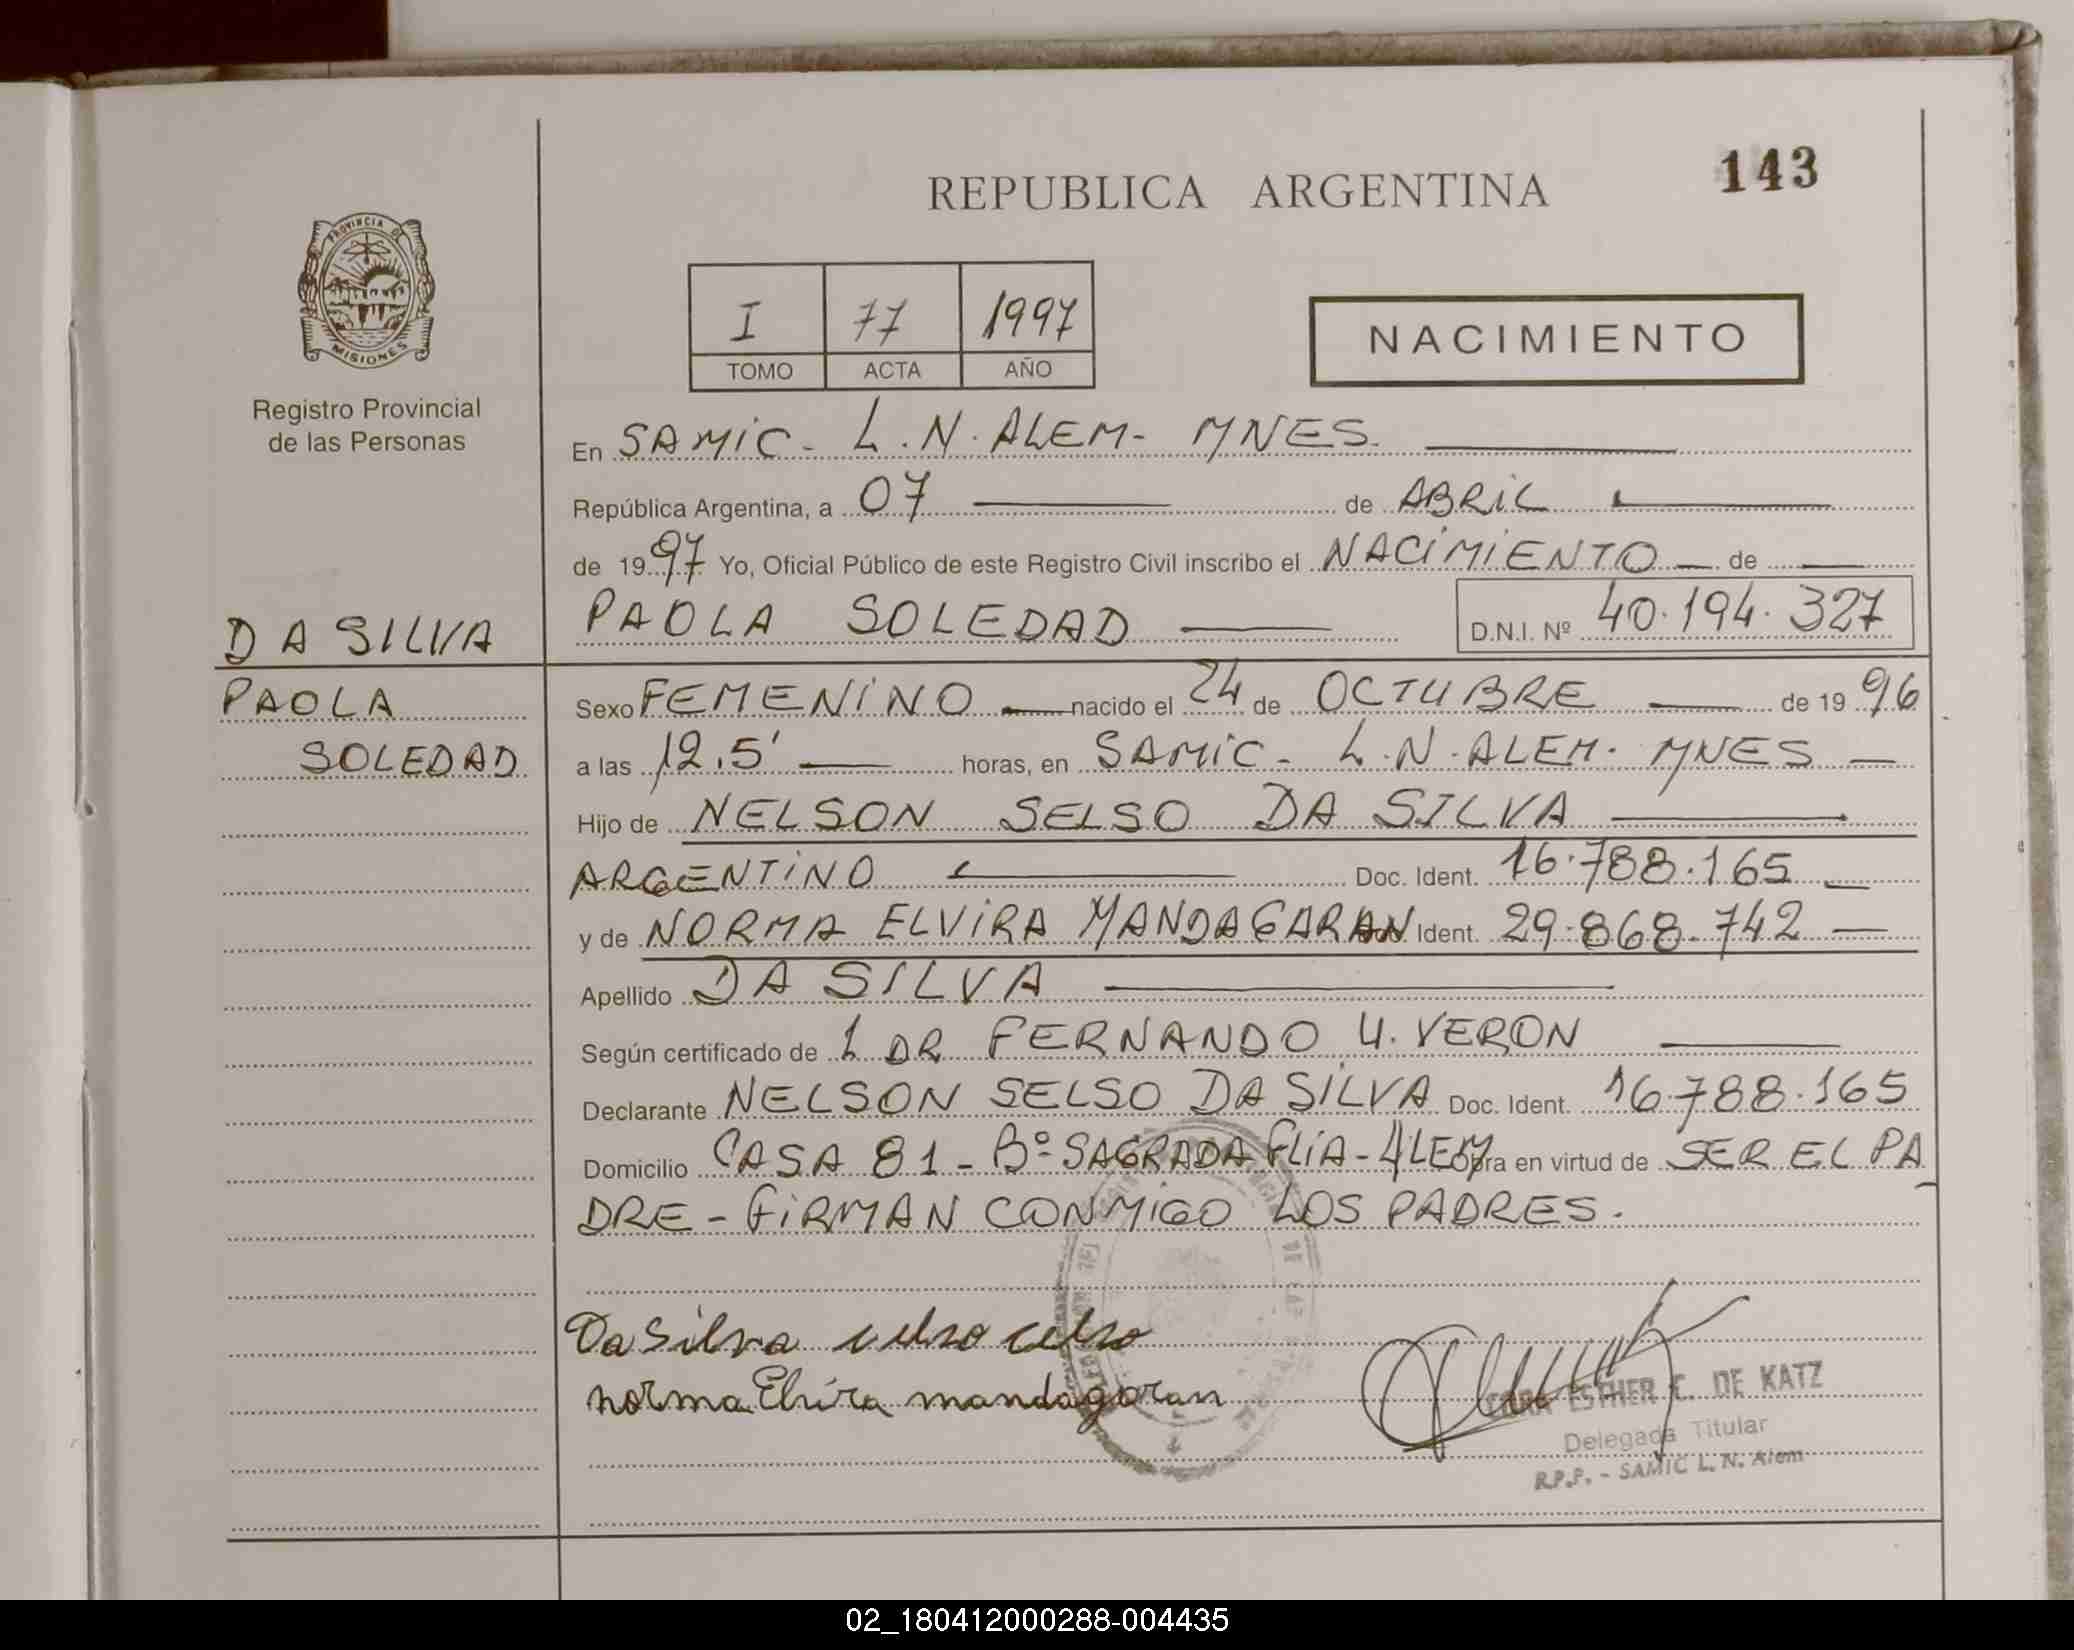 REPUBLICA ARGENTINA
143
PROVINCIA DE
MISIONES
Registro Provincial
de las Personas
I 77 1997
TOMO ACTA AÑO
NACIMIENTO
En SAMIC - L.N. ALEM - MNES.
República Argentina, a 07 de ABRIL
de 1997 Yo, Oficial Público de este Registro Civil inscribo el NACIMIENTO de
DA SILVA
PAOLA SOLEDAD
D.N.I. Nº 40.194.327
PAOLA
SOLEDAD
Sexo FEMENINO nacido el 24 de OCTUBRE de 1996
a las 12.5' horas, en SAMIC - L.N. ALEM. MNES
Hijo de NELSON SELSO DA SILVA
ARGENTINO Doc. Ident. 16.788.165
y de NORMA ELVIRA MANDAGARAN Doc. Ident. 29.868.742
Apellido DA SILVA
Según certificado de 1 DR FERNANDO U. VERON
Declarante NELSON SELSO DA SILVA Doc. Ident. 16.788.165
Domicilio CASA 81 - Bº SAGRADA FLIA - ALEM Obra en virtud de SER EL PA
DRE - FIRMAN CONMIGO LOS PADRES.
Da Silva celso
norma Elvira mandagaran
ESTHER C. DE KATZ
Delegada Titular
R.P.P. - SAMIC L. N. Alem
02_180412000288-004435